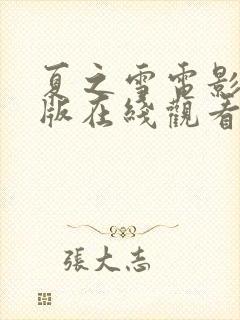 夏之雪電影
版在綫觀看
張大志